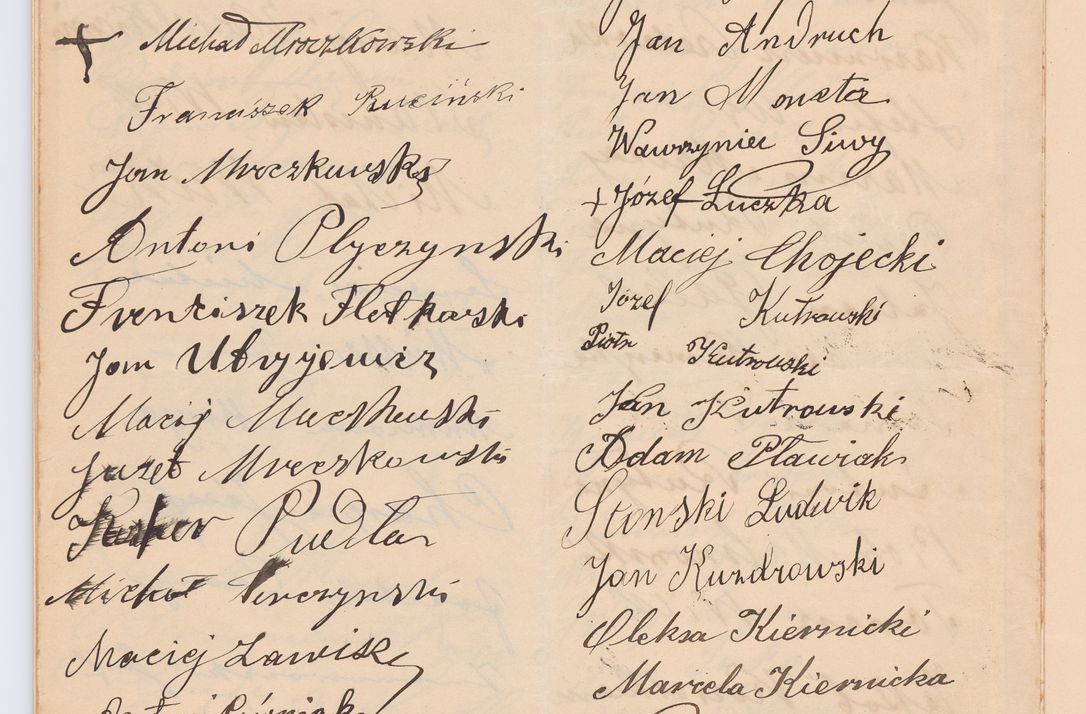 Michał Mroczkowski
Franciszek Ruciński
Jan Mroczkowski
Antoni Plyczynski
Frenciszek Fletkarski
Jam
Maciej
Juzef Mreczkowski
Puedla
Michał
Maciej Zawisz
Jan Andruch
Jan Moneta
Wawrzyniec Siwy
+ Józef Łuczka
Maciej Chojecki
Józef Kutrowski
Piotr Kutrowski
Jan Kutrowski
Adam Pławiak
Stonski Ludwik
Jan Kuzdrowski
Oleksa Kiernicki
Marcela Kiernicka